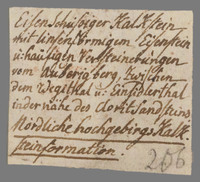 Eisenschüssiger Kalkstein
mit linsenförmigem Eisenstein
u: häufigen Versteinerungen
vom Auberig berg, zwischen
dem Wegithal u: Einsidlerthal
in der nähe des dortit Sandsteins
Nördliche hochgebirgs Kalk
steinformation.
266